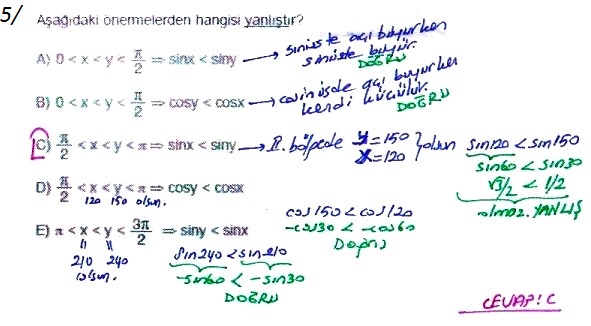 5/ Aşağıdaki önermelerden hangisi yanlıştır?
A) 0 < x < y < π/2 ⇒ sinx < siny → sinüste açı büyürken
sinüste büyür.
DOĞRU
B) 0 < x < y < π/2 ⇒ cosy < cosx → cosinüsde açı büyürken
kendi küçülür.
DOĞRU
C) π/2 < x < y < π ⇒ sinx < siny → II. bölgede y = 150
x = 120 } olsun
sin120 < sin150
sin60 < sin30
√3/2 < 1/2
olmaz. YANLIŞ
D) π/2 < x < y < π ⇒ cosy < cosx
120 150 olsun.
cos150 < cos120
-cos30 < -cos60
Doğru
E) π < x < y < 3π/2 ⇒ siny < sinx
210 240
olsun.
sin240 < sin210
-sin60 < -sin30
DOĞRU
CEVAP: C